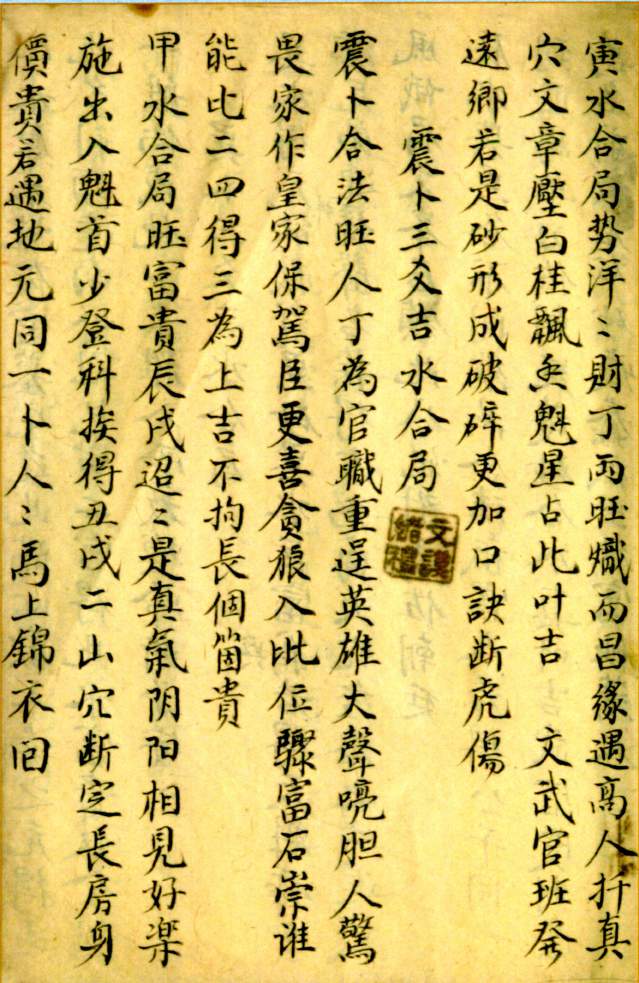 寅水合局势洋〻財丁两旺熾而昌緣遇高人扦真
穴文章壓白桂飄香魁星占此叶吉　文武官班發
遠鄉若是砂形成破碎更加口訣断虎傷
震卜三爻吉水合局
震卜合法旺人丁為官職重逞英雄大聲喨胆人驚
畏家作皇家保駕臣更喜貪狼入此位驟富石崇谁
能比二四得三為上吉不拘長個箇貴
甲水合局旺富貴辰戌迢〻是真氣阴阳相見好楽
施出入魁首少登科挨得丑戌二山穴断定長房身
價貴若遇地元同一卜人〻馬上錦衣回